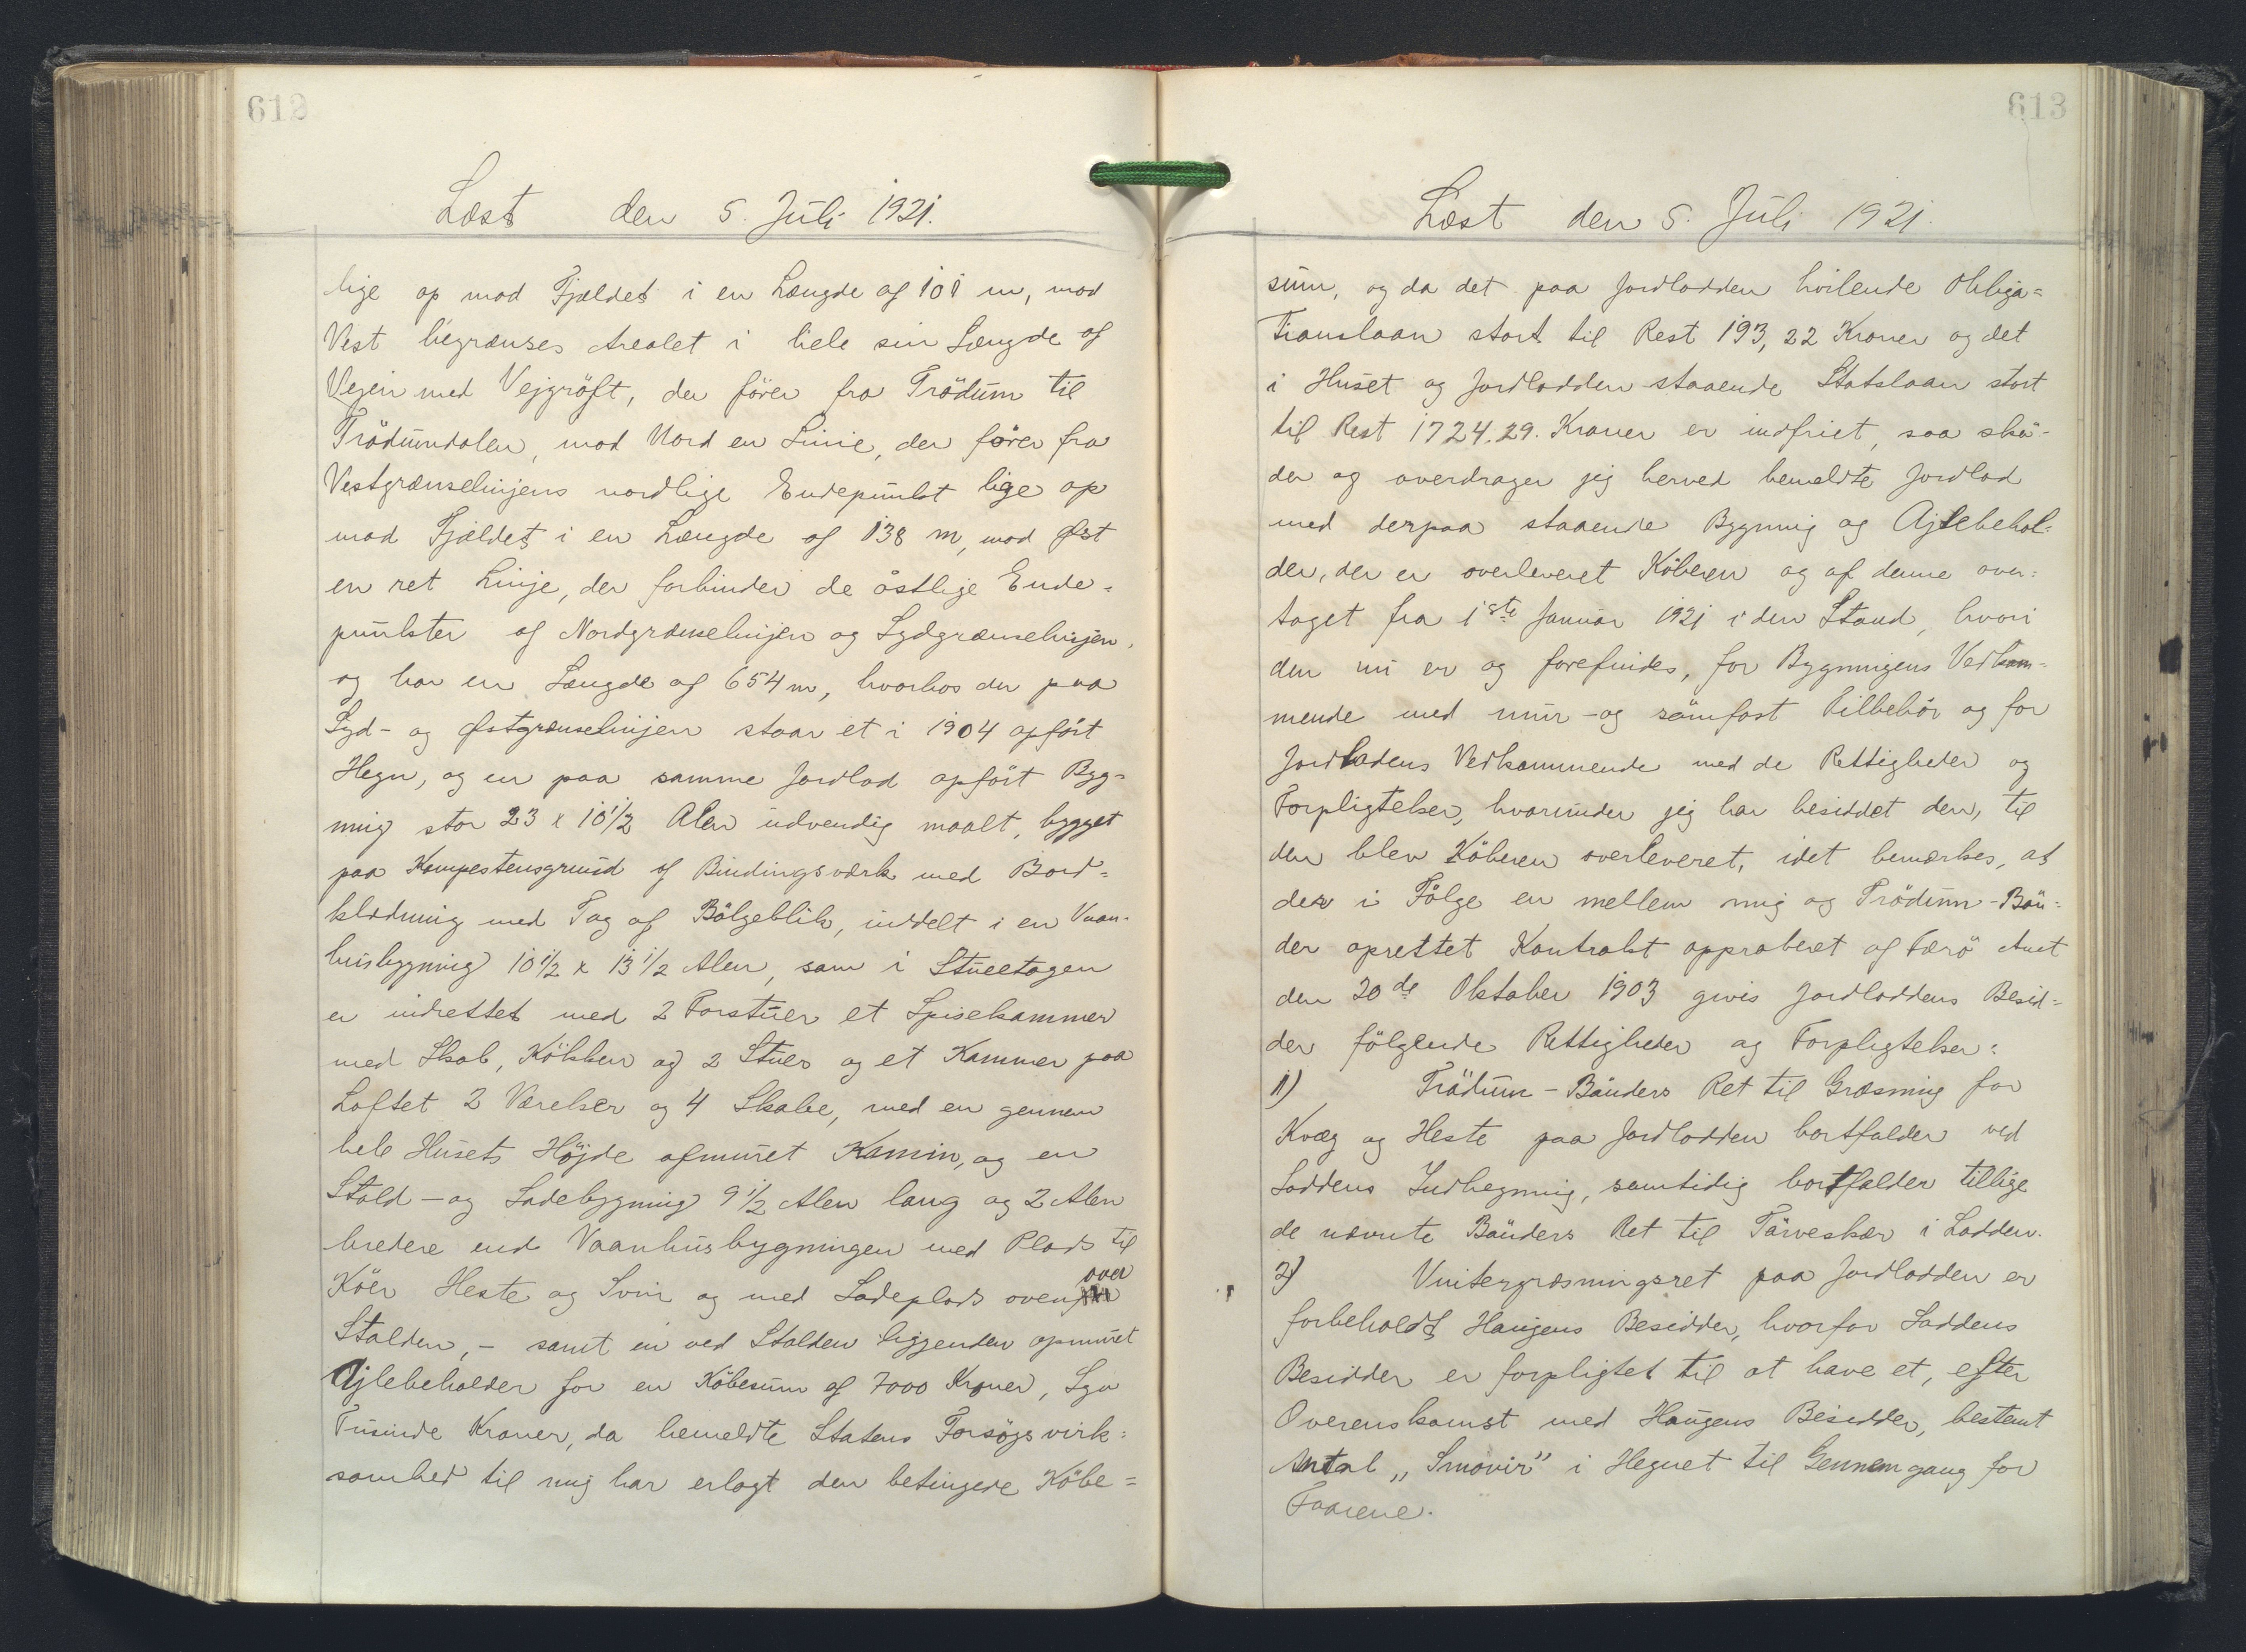 612
Læst den 5. Juli 1921.
lige op mod Fjældet i en Længde af 101 m, mod
Vest begrænses Arealet i hele sin Længde af
Vejen med Vejgröft, der förer fra Trödum til
Trödumdalen, mod Nord en Linie, der förer fra
Vestgrænselinjens nordlige Endepunkt lige op
mod Fjældet i en Længde af 138 m, mod Øst
en ret Linje, der forbinder de östlige Ende-
punkter af Nordgrænselinjen og Sydgrænselinjen,
og har en Længde af 654 m, hvorhos der paa
Syd- og Østgrænselinjen staar et i 1904 opfört
Hegn, og en paa samme Jordlod opfört Byg-
ning stor 23 x 10 1/2 Alen udvendig maalt, bygget
paa Kampestensgrund af Bindingsværk med Bord-
klædning med Tag af Bölgeblik, inddelt i en Vaan-
husbygning 10 1/2 x 13 1/2 Alen, som i Stueetagen
er indrettet med 2 Forstuer et Spisekammer
med Skab, Kökken og 2 Stuer og et Kammer paa
Loftet 2 Værelser og 4 Skabe, med en gennem
hele Husets Höjde afmuret Kamin, og en
Stald- og Ladebygning 9 1/2 Alen lang og 2 Alen
bredere end Vaanhusbygningen med Plads til
Köer Heste og Svin og med Ladeplads oven over
Stalden, - samt en ved Stalden liggenden opmuret
Ajlebeholder for en Köbesum af 7000 Kroner, Syv
Tusinde Kroner, da bemeldte Statens Forsögsvirk-
somhed til mig har erlagt den betingede Köbe-
613
Læst den 5. Juli 1921.
sum, og da det paa Jordlodden hvilende Obliga-
tionslaan stort til Rest 193,22 Kroner og det
i Huset og Jordlodden staaende Statslaan stort
til Rest 1724.29. Kroner er indfriet, saa skö-
der og overdrager jeg herved bemeldte Jordlod
med derpaa staaende Bygning og Ajlebehol-
der, der er overleveret Köberen og af denne over-
taget fra 1ste Januar 1921 i den Stand, hvori
den nu er og forefindes, for Bygningens Vedkom-
mende med mur- og sömfast Tilbehör og for
Jordladens Vedkommende med de Rettigheder og
Forpligtelser, hvorunder jeg har besiddet den, til
den blev Köberen overleveret, idet bemærkes, at
der i Fölge en mellem mig og Trödum-Bön-
der oprettet Kontrakt approberet af Færö Amt
den 20de Oktober 1903 gives Jordloddens Besid-
der fölgende Rettigheder og Forpligtelser:
1) Trödum-Bönders Ret til Græsning for
Kvæg og Heste paa Jordlodden bortfalder ved
Loddens Indhegning, samtidig bortfalder tillige
de nævnte Bönders Ret til Törveskær i Lodden.
2) Vintergræsningsret paa Jordlodden er
forbeholdt Haugens Besidder, hvorfor Loddens
Besidder er forpligtet til at have et, efter
Overenskomst med Haugens Besidder, bestemt
Antal „Smovir" i Hegnet til Gennemgang for
Faarene.